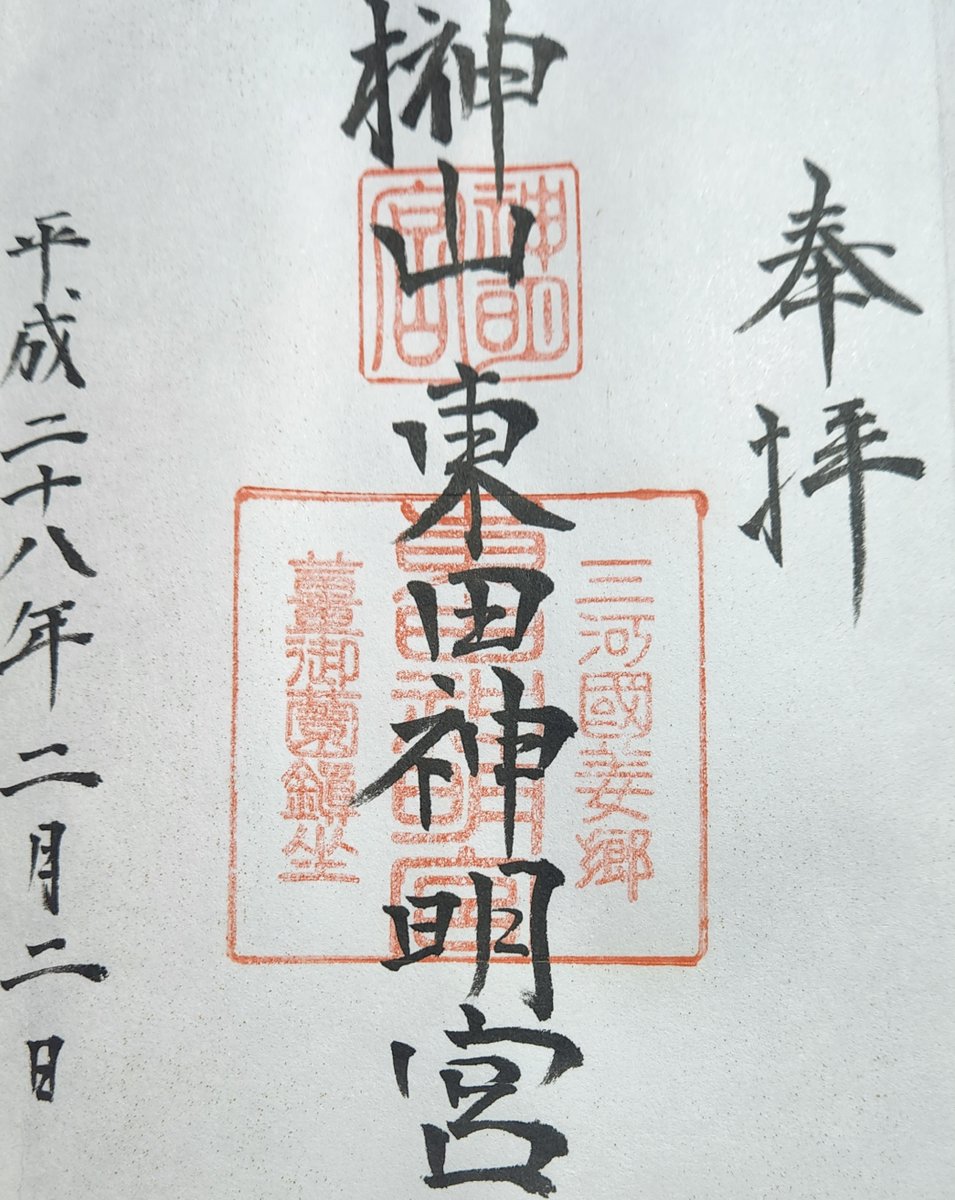 奉拝
三河國姜郷
榊山 東田神明宮
神明宮
東田神明宮
薑御薗鎮坐
平成二十八年二月二日